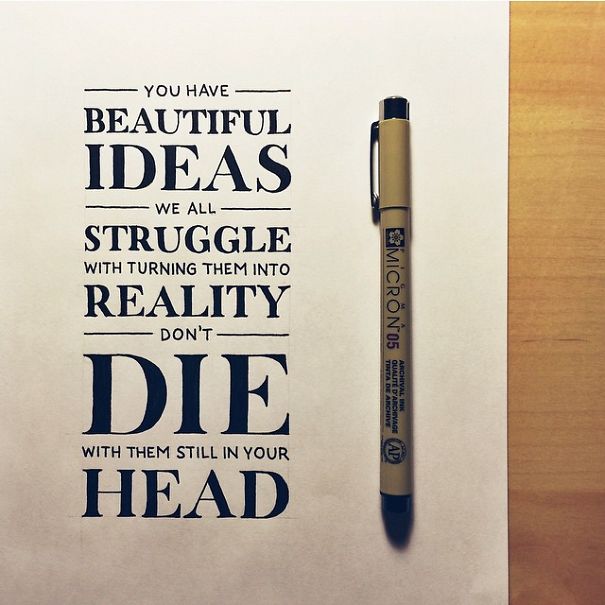 YOU HAVE
BEAUTIFUL
IDEAS
WE ALL
STRUGGLE
WITH TURNING THEM INTO
REALITY
DON'T
DIE
WITH THEM STILL IN YOUR
HEAD
PIGMA
MICRON 05
ARCHIVAL INK
QUALITÉ D'ARCHIVAGE
TINTA DE ARCHIVE
AP